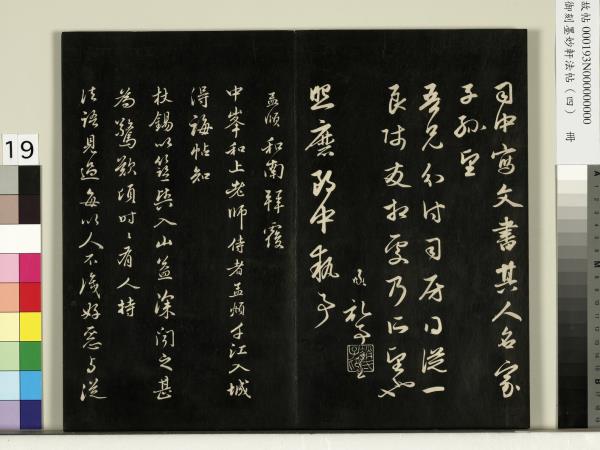 故帖 000193N000000000
御刻墨妙軒法帖(四) 冊
司中寫文書其人名家
子孫望
吾兄分付司房日從一
良師友相處乃所望也
照磨郎中執事
孟頫和南拜覆
中峯和上老師侍者孟頫江入城
得誨帖知
杖錫以輿入山益深聞之甚
為驚歎頃時〻有人持
法語見過每以人不識好惡与從
19